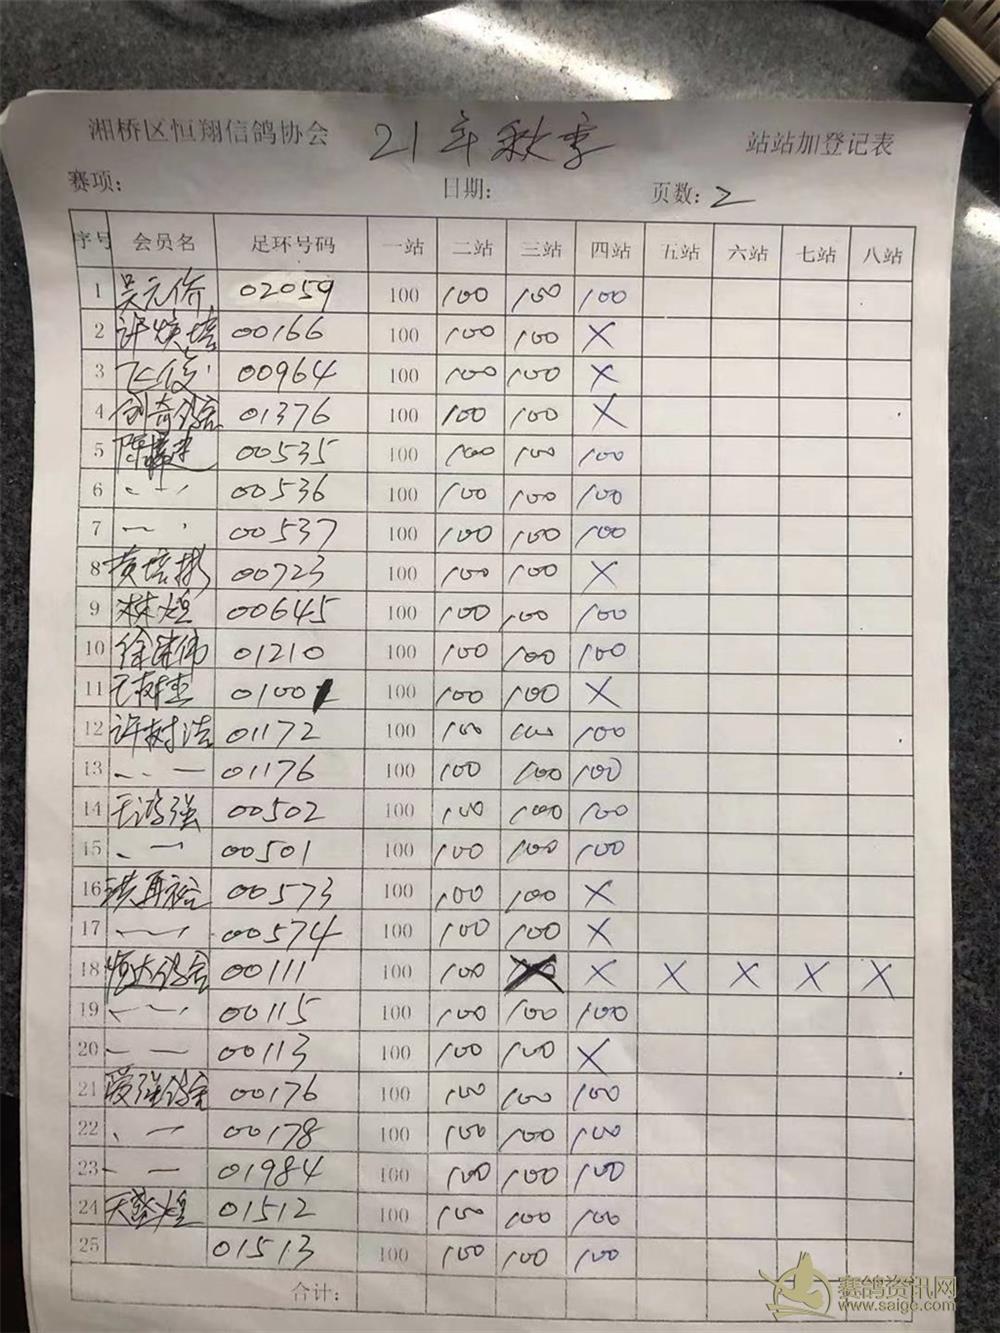 湘桥区恒翔信鸽协会 21年秋季 站站加登记表
赛项: 日期: 页数: 2
序号 会员名 足环号码 一站 二站 三站 四站 五站 六站 七站 八站
1 吴元侨 02059 100 100 100 100
2 许焕培 00166 100 100 100 X
3 飞俊 00964 100 100 100 X
4 创奇鸽舍 01376 100 100 100 X
5 陈 00535 100 100 100 100
6 00536 100 100 100 100
7 00537 100 100 100 100
8 黄培彬 00723 100 100 100 X
9 林煌 00645 100 100 100 100
10 徐建伟 01210 100 100 100 100
11 树杰 01001 100 100 100 X
12 许树浩 01172 100 100 100 100
13 01176 100 100 100 100
14 王海强 00502 100 100 100 100
15 00501 100 100 100 100
16 洪再裕 00573 100 100 100 X
17 00574 100 100 100 X
18 恒达鸽舍 00111 100 100 X X X X X
19 00115 100 100 100 100
20 00113 100 100 100 X
21 爱强鸽舍 00176 100 100 100 100
22 00178 100 100 100 100
23 01984 100 100 100 100
24 煌 01512 100 100 100 100
25 01513 100 100 100 100
合计:
赛鸽资讯网
www.saige.com